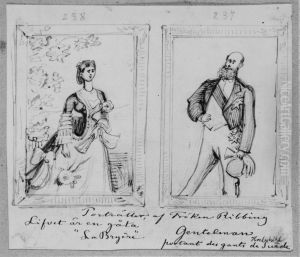 238
237
Porträtter, af Fröken Ribbing
Lifvet är en gåta
"La Bryère"
Gentelman
portant des gants de Suède